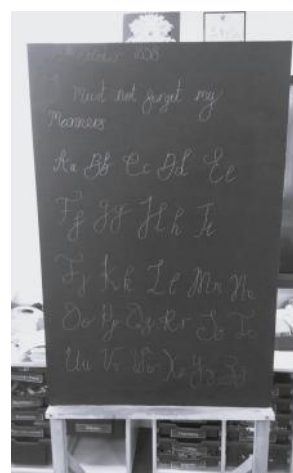 October 1808
I Must not forget my
Manners
Aa Bb Cc Dd Ee
Ff Gg Hh Ii
Jj Kk Ll Mm Nn
Oo Pp Qq Rr Ss Tt
Uu Vv Ww Xx Yy Zz